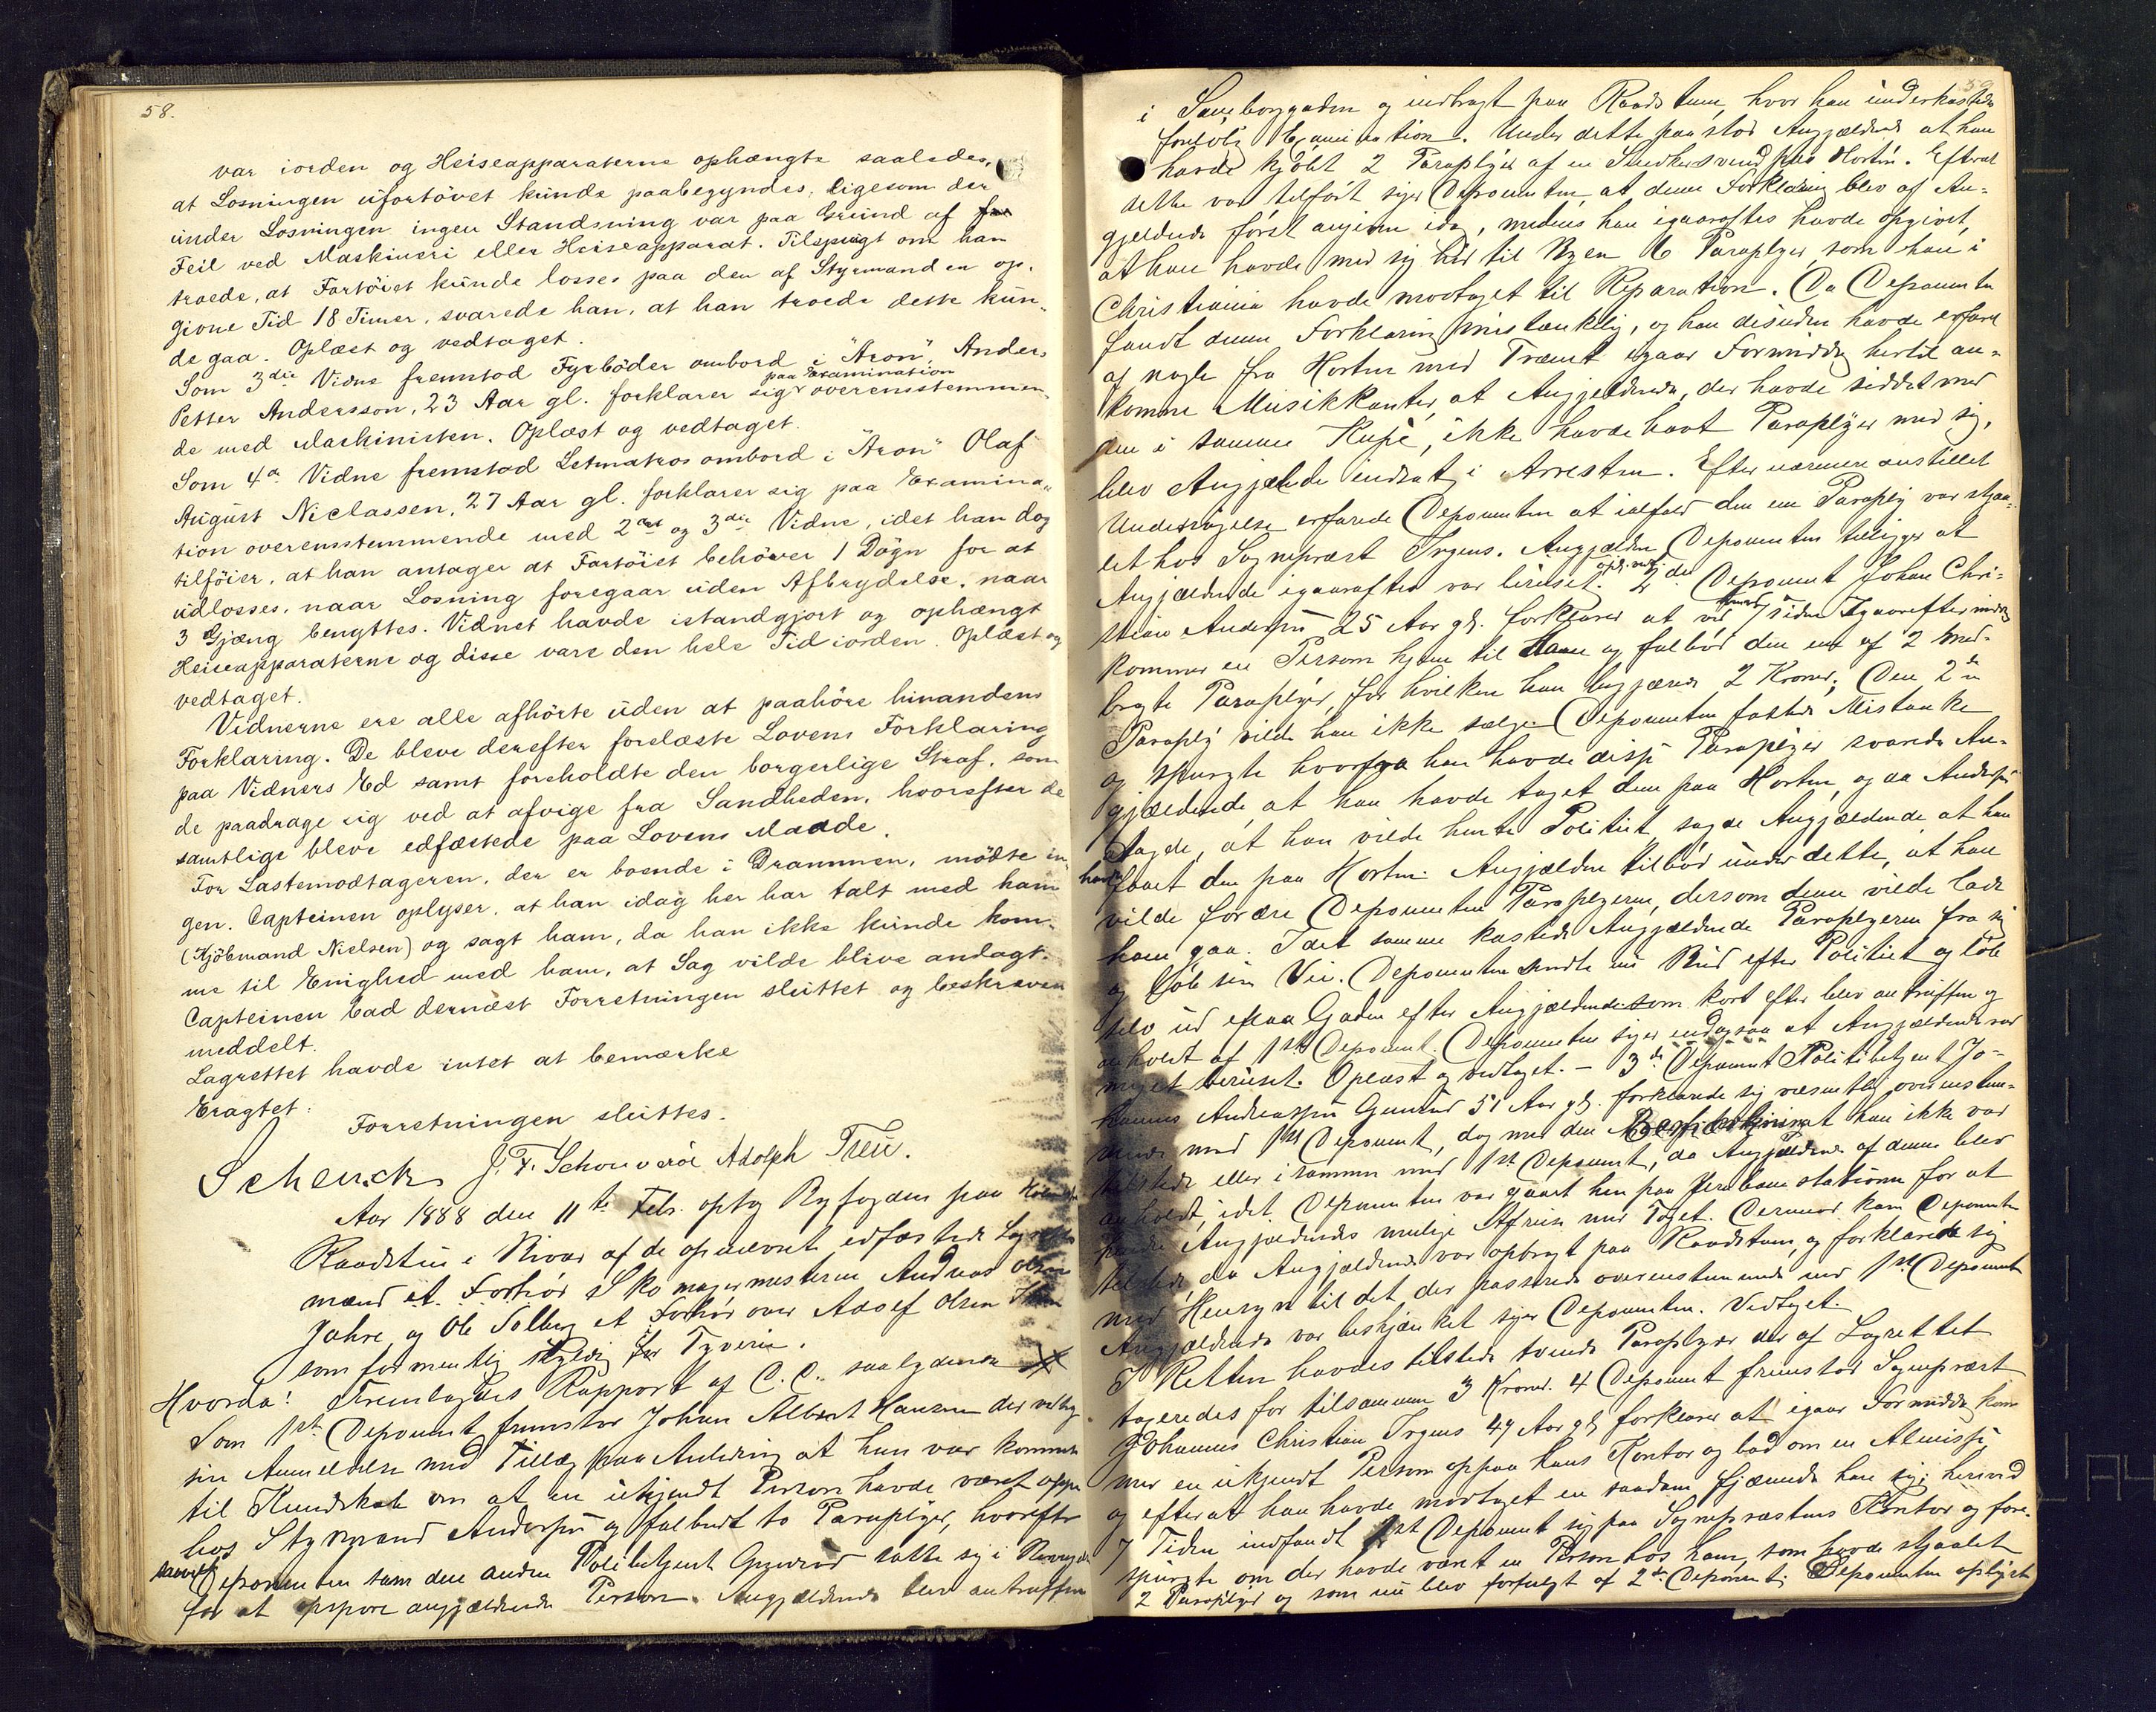 58.
var iorden og Heiseapparaterne ophængte saaledes,
at Losningen ufortövet kunde paabegyndes, ligesom der
under Losningen ingen Standsning var paa Grund af
Feil ved Maskineri eller Heiseapparat. Tilspurgt om han
troede, at Fartöiet kunde losses paa den af Styrmanden op-
givne Tid 18 Timer, svarede han, at han troede dette kun-
de gaa. Oplæst og vedtaget.
Som 3die Vidne fremstod Fyrböder ombord i "Aron", Anders
Petter Andersson, 23 Aar gl. forklarer sig paa Examination overensstemmen-
de med Maskinisten. Oplæst og vedtaget.
Som 4de Vidne fremstod Letmatros ombord i "Aron" Olaf
August Niclassen, 27 Aar gl. forklarer sig paa Examina-
tion overensstemmende med 2det og 3die Vidne, idet han dog
tilföier, at han antager at Fartöiet behöver 1 Dögn for at
udlosses, naar Losning foregaar uden Afbrydelse, naar
3 Gjæng benyttes. Vidnet havde istandgjort og ophængt
Heiseapparaterne og disse vare den hele Tid iorden. Oplæst og
vedtaget.
Vidnerne ere alle afhörte uden at paahöre hinandens
Forklaring. De bleve derefter forelæste Lovens Forklaring
paa Vidners Ed samt foreholdte den borgerlige Straf, som
de paadrage sig ved at afvige fra Sandheden, hvorefter de
samtlige bleve edfæstede paa Lovens Maade.
For Lastemodtageren, der er boende i Drammen, mödte in-
gen. Capteinen oplyser, at han idag her har talt med ham
(Kjöbmand Nielsen) og sagt ham, da han ikke kunde kom-
me til Enighed med ham, at Sag vilde blive andlagt.
Capteinen bad dernæst Forretningen sluttet og beskreven
meddelt.
Lagrettet havde intet at bemærke
Eragtet:
Forretningen sluttes.
Schenck J. F. Adolph Treu.
Aar 1888 den 11te Feb. optog Byfogden paa
Raadstuen i af de opnævnte edfæstede Lagrettes
mænd et Forhör Skomagermesterne Andreas Olsen
Jahre og Ole Solberg et Forhör over Adolf Olsen
som formentlig skyldig for Tyveri.
Hvorda! Fremlagdes Rapport af C. C. saalydende
Som 1ste Deponent fremstod Johan Albert Hansen der vedtog
sin Anmeldelse med Tillæg paa Anledning at han var kommen
til Kundskab om at en ukjendt Person havde været oppe
hos Styrmand Andersen og falbudt to Paraplyer, hvorefter
Deponenten sam den anden Politibetjent Gunerød satte sig i Bevægelse
for at opspore angjældende Person. Angjældende blev antruffen
i gaden og indbragt paa Raadstuen, hvor han underkastedes
forelöbig Examination. Under dette paastod Angjældende at han
havde kjöbt 2 Paraplyer af en Snedkersvend paa Horten. Efterat
dette var tilfört siger Deponenten, at denne Forklaring blev af An-
gjeldende först angiven idag, medens han igaaraftes havde opgivet,
at han havde med sig her til Byen 6 Paraplyer, som han i
Christiania havde modtaget til Reparation. Da Deponenten
fandt denne Forklaring mistænkelig, og han desuden havde erfaret
af nogle fra Horten med Trænet igaar Formiddag hertil an-
komne Musikkanter, at Angjeldende, der havde siddet med
dem i samme Kupé, ikke havde havt Paraplyer med sig,
blev Angjældende indsat i Arresten. Efter nærmere anstillet
Undersögelse erfarede Deponenten at ialfald den ene Paraply var stjaa-
let hos Sogneprest Irgens. Angjældende Deponenten tillægger at
Angjældende igaaraftes var beruset. opl. vedt. 2den Deponent Johan Chri-
stian Andersen 25 Aar gl. forklarer at ved 7 tiden Igaareftermiddag
kommer en Person hjem til Ham og falböd den ene af 2 med-
bragte Paraplyer, for hvilken han begjærede 2 Kroner; Den 2den
Paraply vilde han ikke sælge. Deponenten fattede Mistanke
og spurgte hvorfra han havde disse Paraplyer svarede An-
gjældende, at han havde taget dem paa Horten, og da Andersen
sagde, at han vilde hente Politiet, sagde Angjældende, at han
havde faaet dem paa Horten. Angjælden tilböd under dette, at han
vilde forære Deponenten Paraplyerne, dersom denne vilde lade
ham gaa. I det samme kastede Angjældende Paraplyerne fra sig
og löb sin Vei. Deponenten sendte nu Bud efter Politiet og löb
selv ud paa Gaden efter Angjældende som kort efter blev antruffen og
anholdt af 1ste Deponent. Deponenten siger endogsaa at Angjældende var
meget beruset. Oplæst og vedtaget. – 3de Deponent Politibetjent Jo-
hannes Andreassen Gunerud 51 Aar gl. forklarede sig væsentlig overensstem-
mende med 1ste Deponent, dog med den at han ikke var
tilstede eller isammen med 1ste Deponent, da Angjældende af denne blev
anholdt, idet Deponenten var gaaet hen paa Jernbanestationen for at
hindre Angjældendes mulige Afreise med Toget. Derimod kom Deponenten
tilstede, da Angjældende var opbragt paa Raadstuen, og forklarede sig
med Hensyn til det der passerede overensstemmende med 1ste Deponent
Angjældende var beskjænket siger Deponenten. Vedtaget.
I Retten havdes tilstede tvende Paraplyer der af Lagrettet
tageredes for tilsammen 3 Kroner. 4 Deponent fremstod Sogneprest
Johannes Christian Irgens 49 Aar gl. forklarer at igaar Formiddag kom
mer en ukjendt Person op paa hans Kontor og bad om en Almisse
og efterat han havde modtaget en saadan fjernede han sig; henved
7 Tiden indfandt 1ste Deponent sig paa Sogneprestens Kontor og fore-
spurgte om der havde været en Person hos ham, som havde stjaalet
2 Paraplyer og som nu blev forfulgt af 2den Deponent. Deponenten oplyste